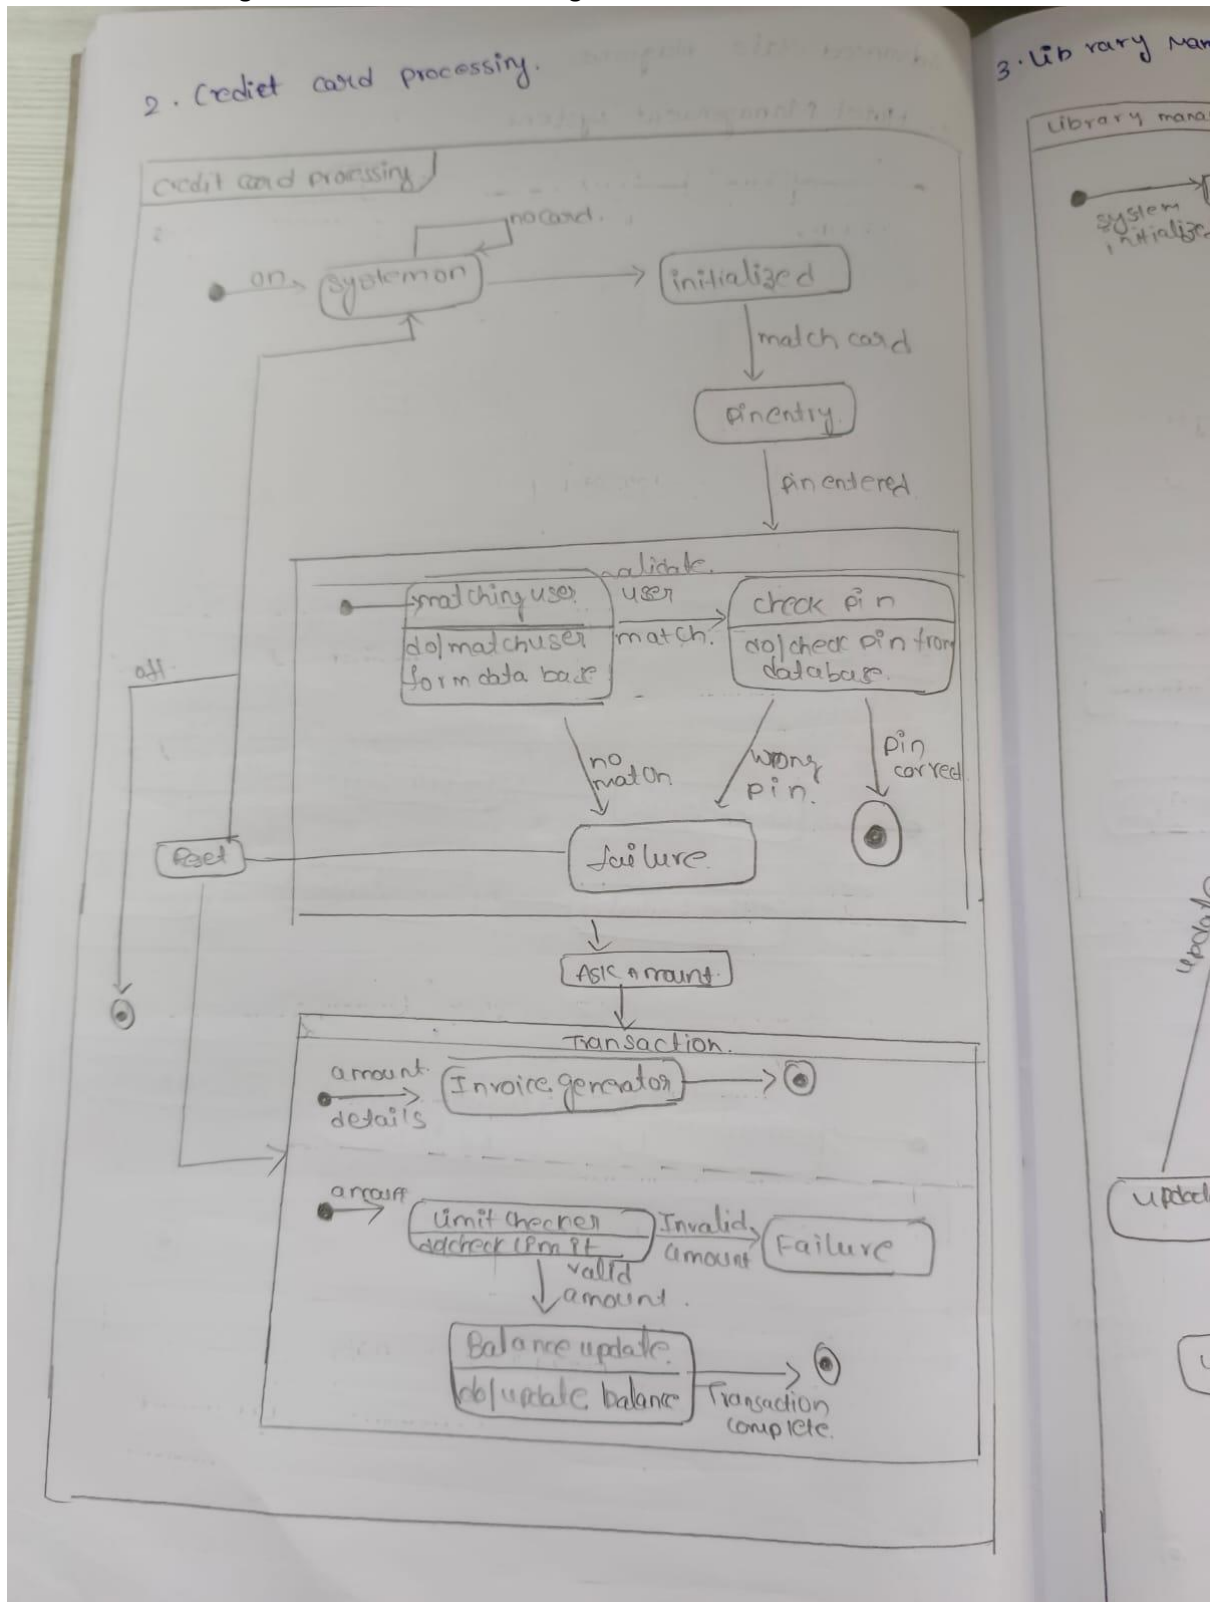 2. Crediet card processing.
credit card processing
no card.
on
system on
initialized
match card
pin entry
pin entered
validate.
matching user
do/match user
form data base
user
match.
check pin
do/check pin from
database.
off
no
match
wrong
pin.
pin
corred
failure
Ask Amount
Transaction.
amount
details
Invoice generator
amount
limit checker
Invalid
amount
Failure
valid
amount.
Balance update
do/update balance
Transaction
complete.
3. Lib rary Man
Library mana
system
initialize
update
update